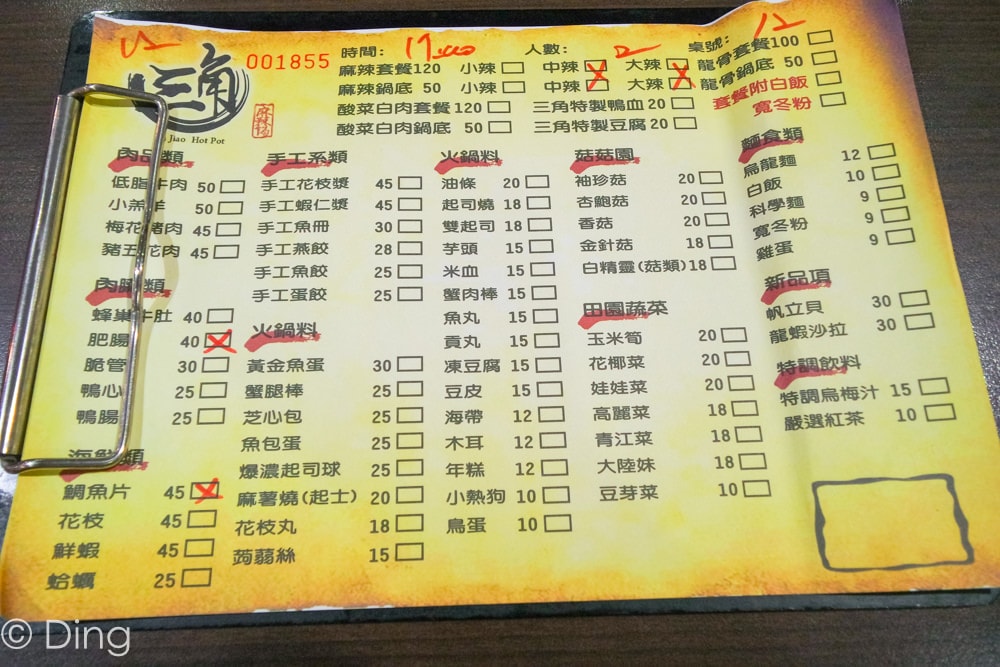 001855
時間: 人數: 2 桌號: 12
麻辣套餐120 小辣 中辣 大辣 龍骨套餐100
麻辣鍋底 50 小辣 中辣 大辣 龍骨鍋底 50
酸菜白肉套餐120 三角特製鴨血20 套餐附白飯
酸菜白肉鍋底 50 三角特製豆腐20 寬冬粉
三角
麻辣鍋
Jiao Hot Pot
肉品類
低脂牛肉 50
小羔羊 50
梅花豬肉 45
豬五花肉 45
內臟類
蜂巢牛肚 40
肥腸 40
脆管 30
鴨心 25
鴨腸 25
海鮮類
鯛魚片 45
花枝 45
鮮蝦 45
蛤蠣 25
手工系類
手工花枝漿 45
手工蝦仁漿 45
手工魚冊 30
手工燕餃 28
手工魚餃 25
手工蛋餃 25
火鍋料
黃金魚蛋 30
蟹腿棒 25
芝心包 25
魚包蛋 25
爆濃起司球 25
麻薯燒(起士) 20
花枝丸 18
蒟蒻絲 15
火鍋料
油條 20
起司燒 18
雙起司 18
芋頭 15
米血 15
蟹肉棒 15
魚丸 15
貢丸 15
凍豆腐 15
豆皮 15
海帶 12
木耳 12
年糕 12
小熱狗 10
鳥蛋 10
菇菇園
袖珍菇 20
杏鮑菇 20
香菇 20
金針菇 18
白精靈(菇類)18
田園蔬菜
玉米筍 20
花椰菜 20
娃娃菜 20
高麗菜 18
青江菜 18
大陸妹 18
豆芽菜 10
麵食類
烏龍麵 12
白飯 10
科學麵 9
寬冬粉 9
雞蛋 9
新品項
帆立貝 30
龍蝦沙拉 30
特調飲料
特調烏梅汁 15
嚴選紅茶 10
© Ding